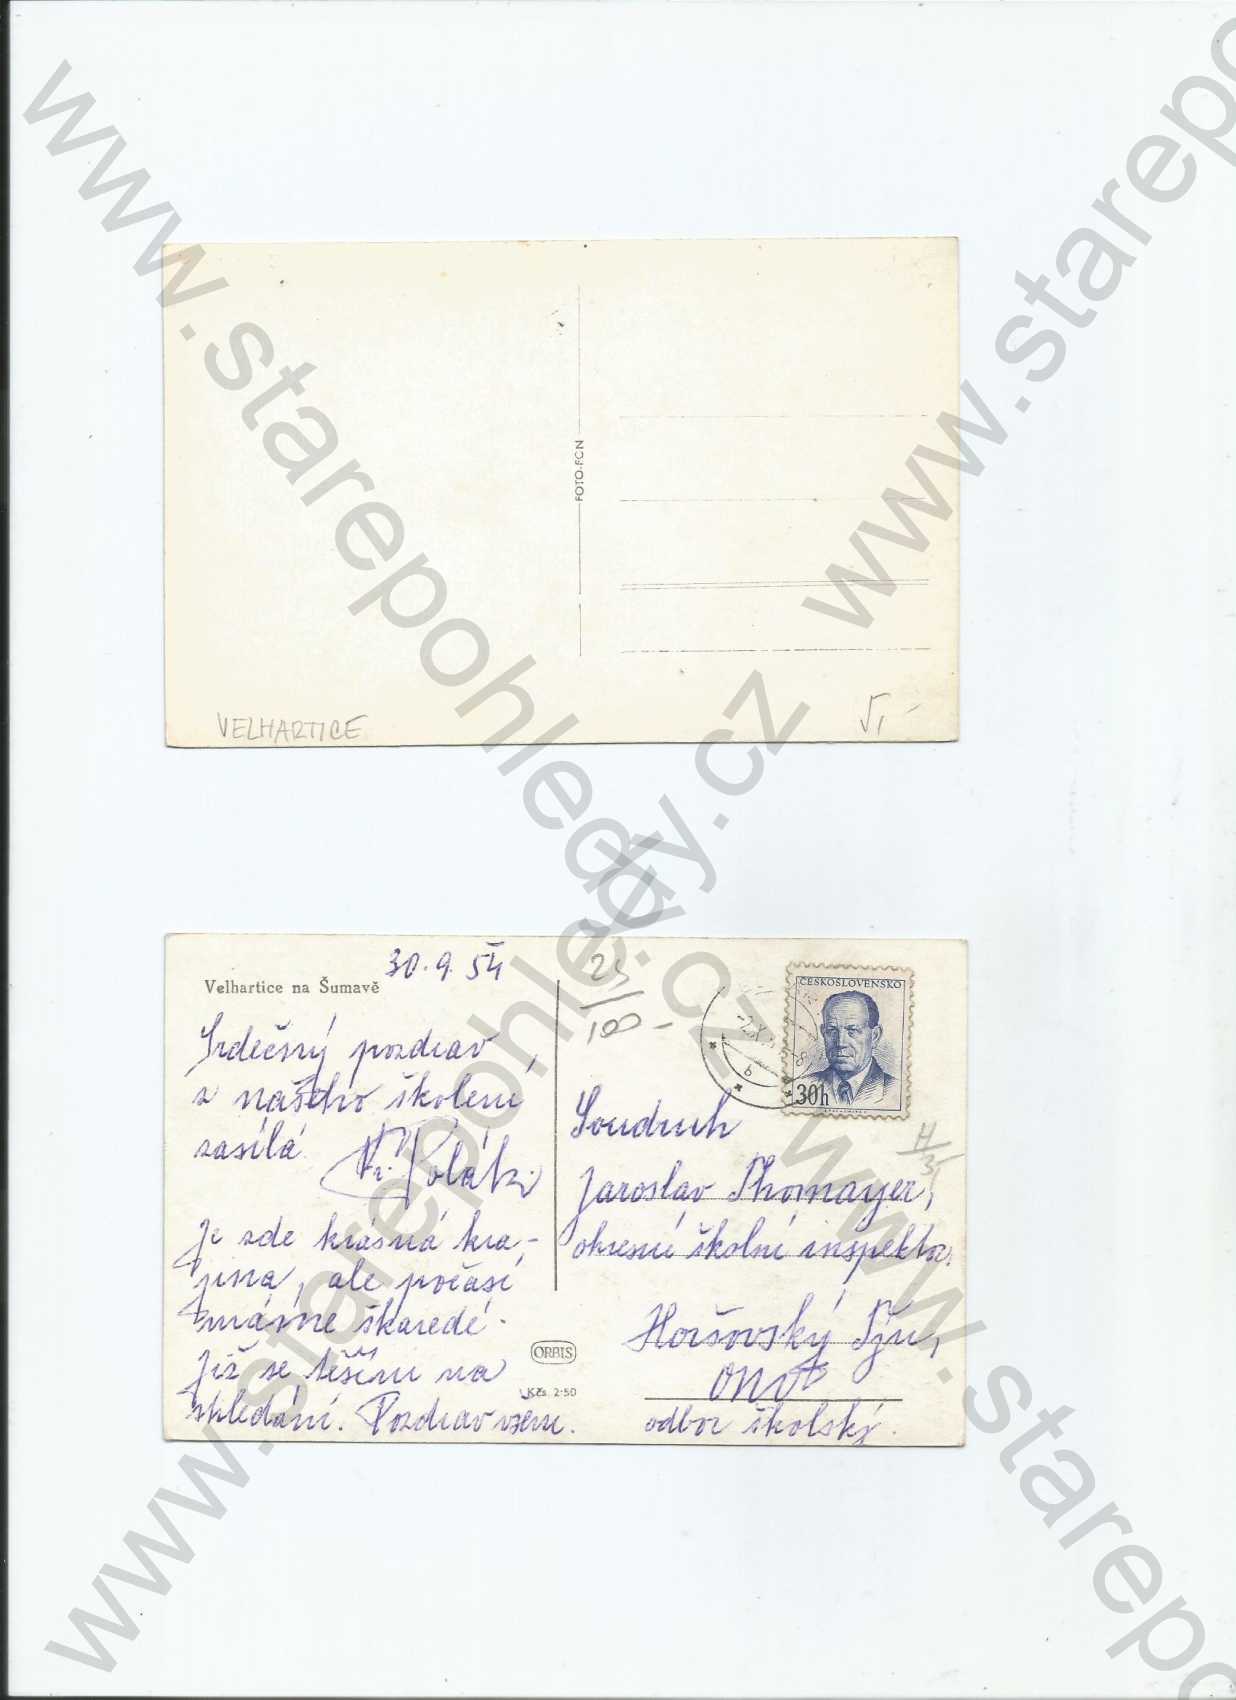 www.starepohledy.cz
www.starepohledy.cz
FOTO-FON
VELHARTICE
Velhartice na Šumavě
30.9.54
Srdečný pozdrav
z našeho školení
zasílá
Polák.
Je zde krásná kra-
jina, ale počasí
máme škaredé.
Již se těším na
shledání. Pozdrav všem.
ORBIS
Kčs 2·50
ČESKOSLOVENSKO
30h
Soudruh
Jaroslav Thomayer,
okresní školní inspektor,
Horšovský Týn,
ONV
odbor školský.
www.starepohledy.cz